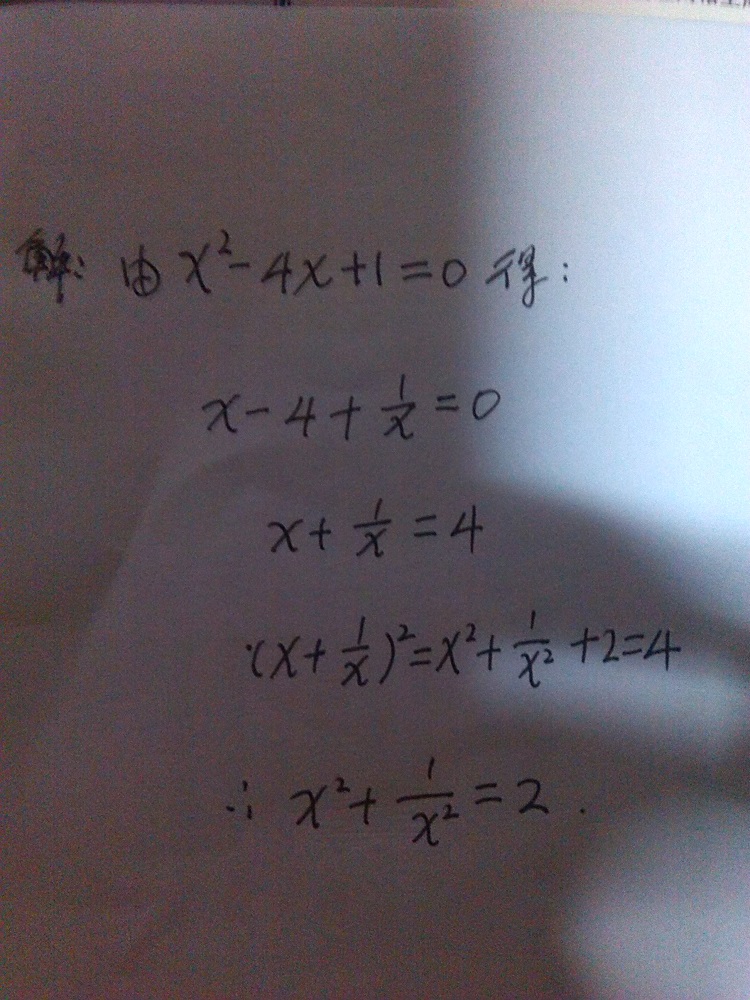 解: 由 x²-4x+1=0 得:
x-4+1/x=0
x+1/x=4
(x+1/x)²=x²+1/x²+2=4
∴ x²+1/x²=2.